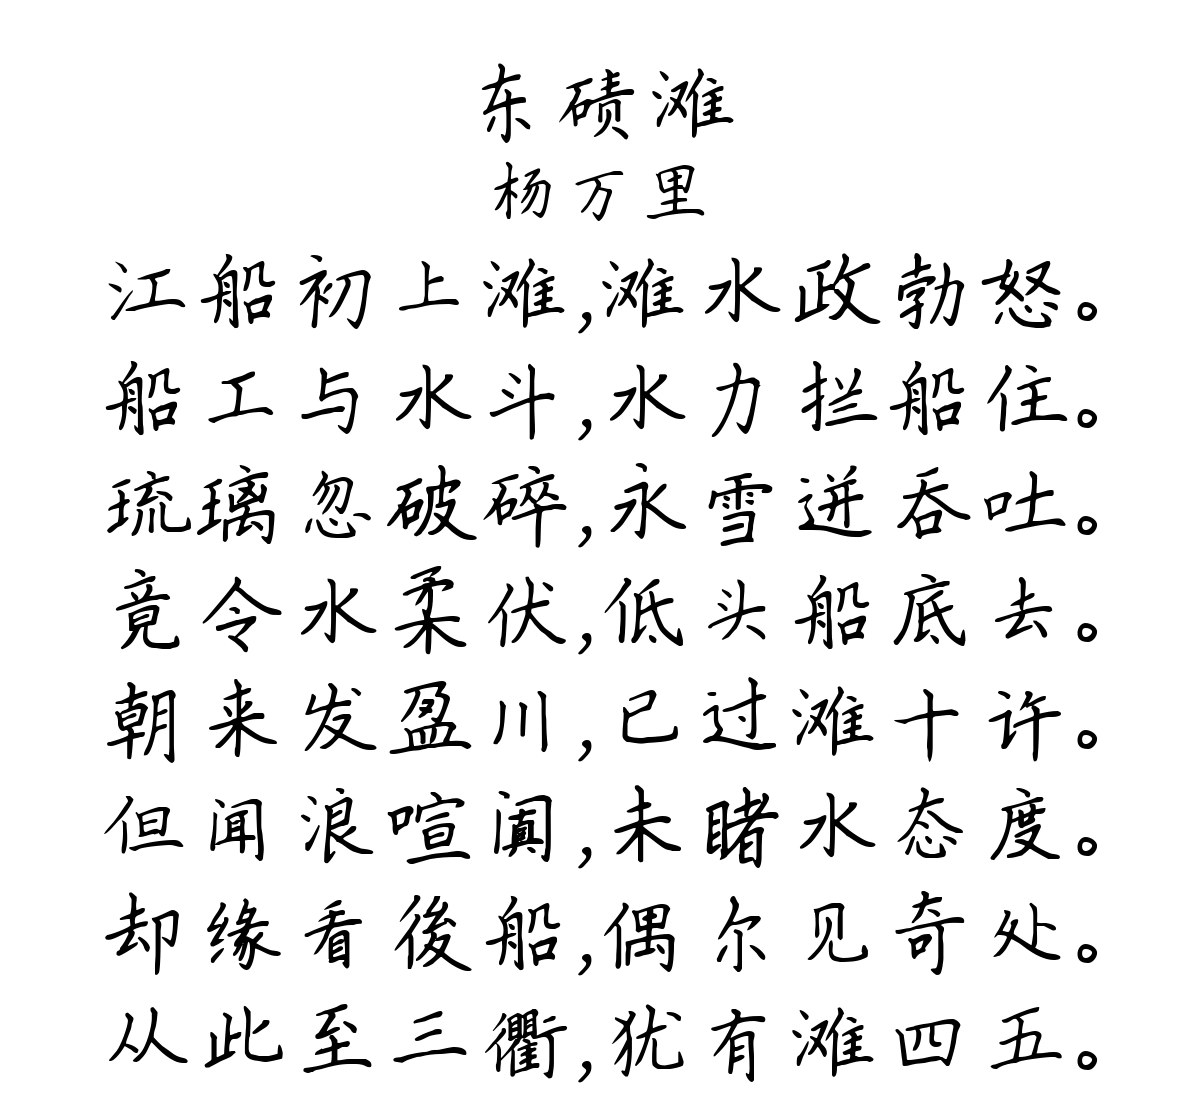 东碛滩
杨万里
江船初上滩,滩水政勃怒。
船工与水斗,水力拦船住。
琉璃忽破碎,永雪迸吞吐。
竟令水柔伏,低头船底去。
朝来发盈川,已过滩十许。
但闻浪喧阗,未睹水态度。
却缘看後船,偶尔见奇处。
从此至三衢,犹有滩四五。